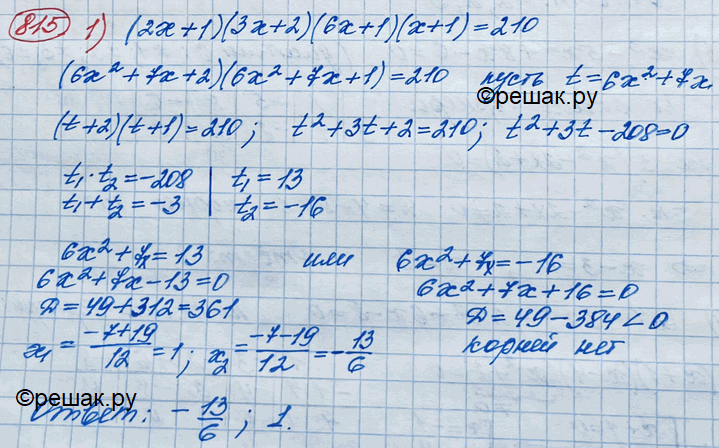 815 1) (2x+1)(3x+2)(6x+1)(x+1)=210
(6x²+7x+2)(6x²+7x+1)=210 пусть t=6x²+7x,
©решак.ру
(t+2)(t+1)=210; t²+3t+2=210; t²+3t-208=0
t₁·t₂=-208 | t₁=13
t₁+t₂=-3 | t₂=-16
6x²+7x=13 или 6x²+7x=-16
6x²+7x-13=0 6x²+7x+16=0
Д=49+312=361 Д=49-384<0
x₁=(-7+19)/12=1; x₂=(-7-19)/12=-13/6 корней нет
©решак.ру
Ответ: -13/6; 1.